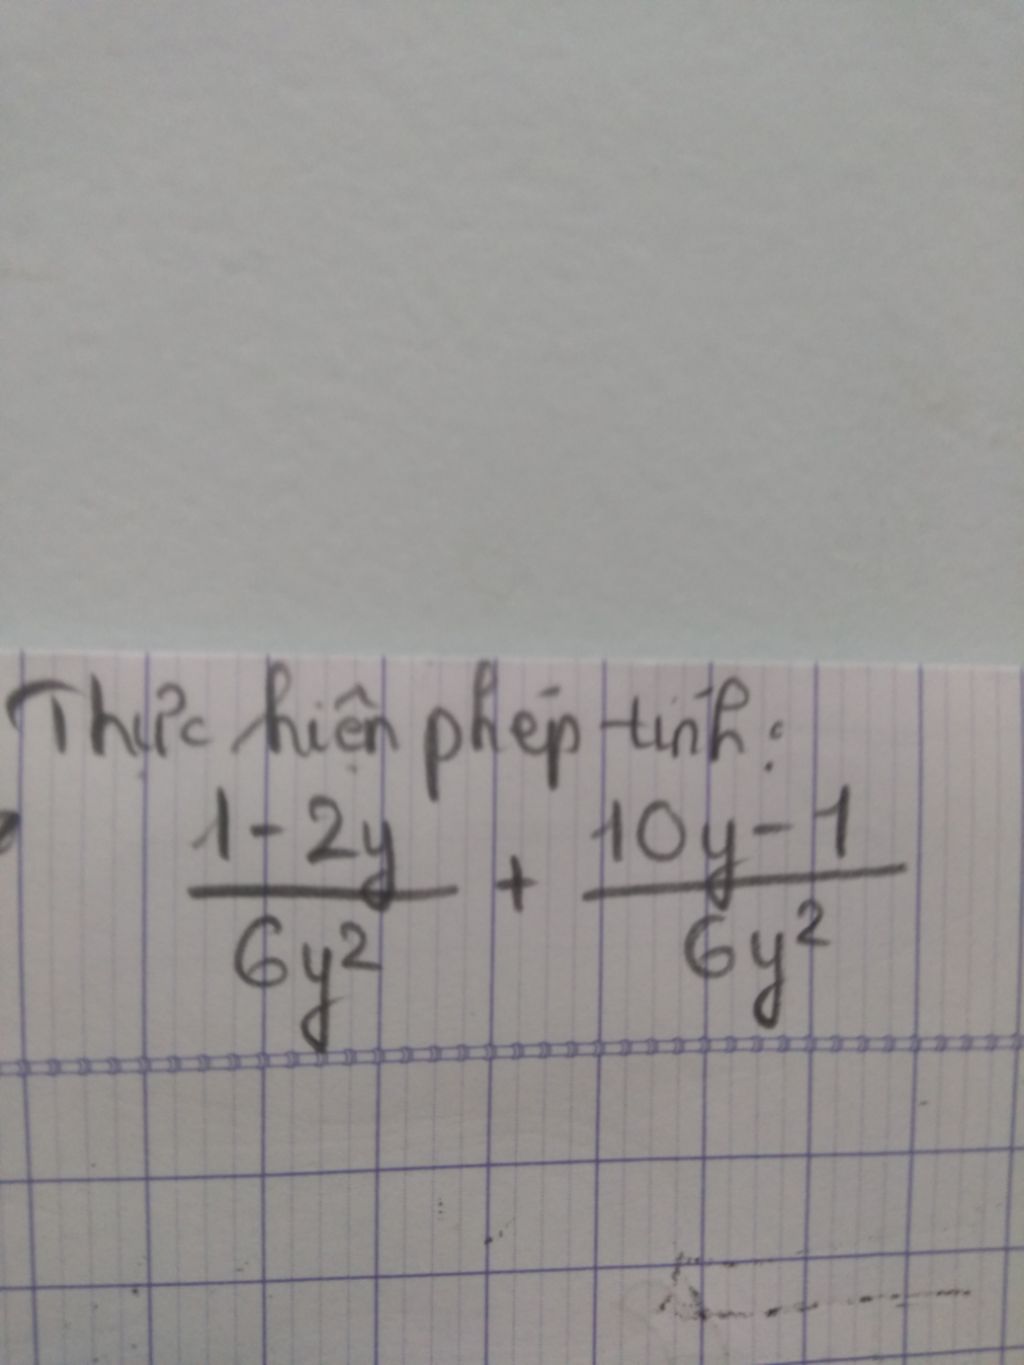 Thực hiện phép tính:
\frac{1-2y}{6y^2} + \frac{10y-1}{6y^2}